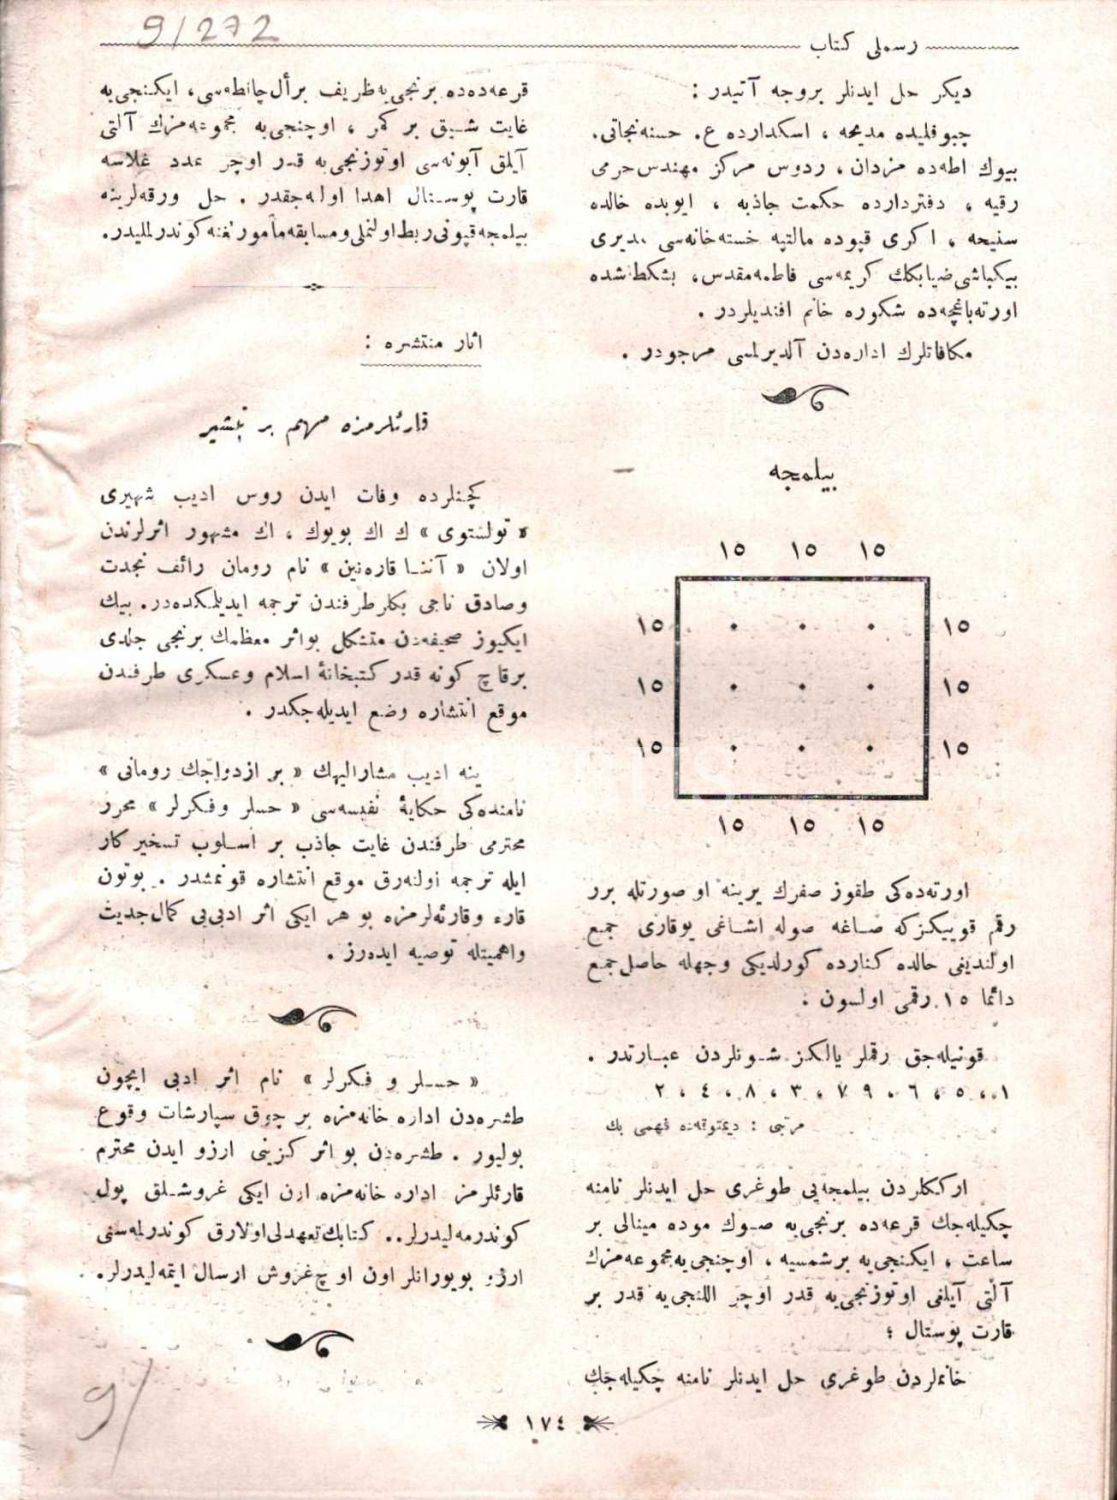 9/272
رسملی كتاب
دیكر حل ایدنلر بروجه آتیدر :
چبوقلیده مدیحه ، اسكدارده ع. حسنه نجاتی.
بیوك اطه‌ده مزدان ، ردوس مركز مهندس حرمی
رقیه ، دفتردارده حكمت جاذبه ، ایوبده خالده
سنیحه ، اكری قپوده مالتپه خسته خانه‌سی مدیری
بیكباشی ضیابكك كریمه‌سی فاطمه مقدس، بشكطاشده
اورته‌باغچه‌ده شكوره خانم افندیلردر .
مكافاتلرك اداره‌دن آلدیرلمسی مرجودر .
بیلمجه
١٥ ١٥ ١٥
١٥ ٠ ٠ ٠ ١٥
١٥ ٠ ٠ ٠ ١٥
١٥ ٠ ٠ ٠ ١٥
١٥ ١٥ ١٥
اورته‌ده‌كی طقوز صفرك یرینه او صورتله برر
رقم قوییكزكه صاغه صوله اشاغی یوقاری جمع
اولندیغی حالده كنارده كورلدیكی وجهله حاصل جمع
دائما ١٥ رقمی اولسون .
قونیله‌جق رقملر یالكز شونلردن عبارتدر .
١ ، ٥ ، ٦ ، ٩ ٧ ، ٣ ، ٨ ، ٤ ، ٢
مرتبی : دیمتوقه‌ده فهمی بك
ارككلردن بیلمجه‌یی طوغری حل ایدنلر نامنه
چكیله‌جك قرعه‌ده برنجی‌یه صوك موده مینالی بر
ساعت ، ایكنجی‌یه برشمسیه ، اوچنجی‌یه مجموعه‌مزك
آلتی آیلغی اوتوزنجی‌یه قدر اوچر اللنجی‌یه قدر بر
قارت پوستال ؛
خانملردن طوغری حل ایدنلر نامنه چكیله‌جك
قرعه‌ده‌ده برنجی‌یه ظریف برأل چانطه‌سی، ایكنجی‌یه
غایت شیق بر كمر ، اوچنجی‌یه مجموعه‌مزك آلتی
آیلق آبونه‌سی اوتوزنجی‌یه قدر اوچر عدد غلاسه
قارت پوستال اهدا اوله‌جقدر . حل ورقه‌لرینه
بیلمجه قپونی ربط اولنملی و مسابقه مأمورلغنه كوندرلملیدر.
اثار منتشره :
قارئلرمزه مهم بر تبشیر
كچنلرده وفات ایدن روس ادیب شهیری
« تولستوی » ك اك بویوك ، اك مشهور اثرلرندن
اولان « آننا قاره‌نین » نام رومان رائف نجدت
وصادق ناجی بكلر طرفندن ترجمه ایدیلمكده‌در. بیك
ایكیوز صحیفه‌دن متشكل بواثر معظمك برنجی جلدی
برقاچ كونه قدر كتبخانهٔ اسلام وعسكری طرفندن
موقع انتشاره وضع ایدیله‌جكدر .
ینه ادیب مشارالیهك « بر ازدواجك رومانی »
نامنده‌كی حكایهٔ نفیسه‌سی « حسلر وفكرلر » محرر
محترمی طرفندن غایت جاذب بر اسلوب تسخیر كار
ایله ترجمه اولنه‌رق موقع انتشاره قونمشدر . بوتون
قارء وقارئه‌لرمزه بو هر ایكی اثر ادبی‌یی كمال جدیت
واهمیتله توصیه ایده‌رز .
« حسلر و فكرلر » نام اثر ادبی ایچون
طشره‌دن اداره خانه‌مزه بر چوق سپارشات وقوع
بولیور . طشره‌دن بو اثر كزینی ارزو ایدن محترم
قارئلرمز اداره خانه‌مزه اون ایكی غروشلق پول
كوندرمه‌لیدرلر.. كتابك تعهدلی اولارق كوندرلمه‌سنی
ارزو بویورانلر اون اوچ غروش ارسال ایتمه‌لیدرلر.
١٧٤
9/